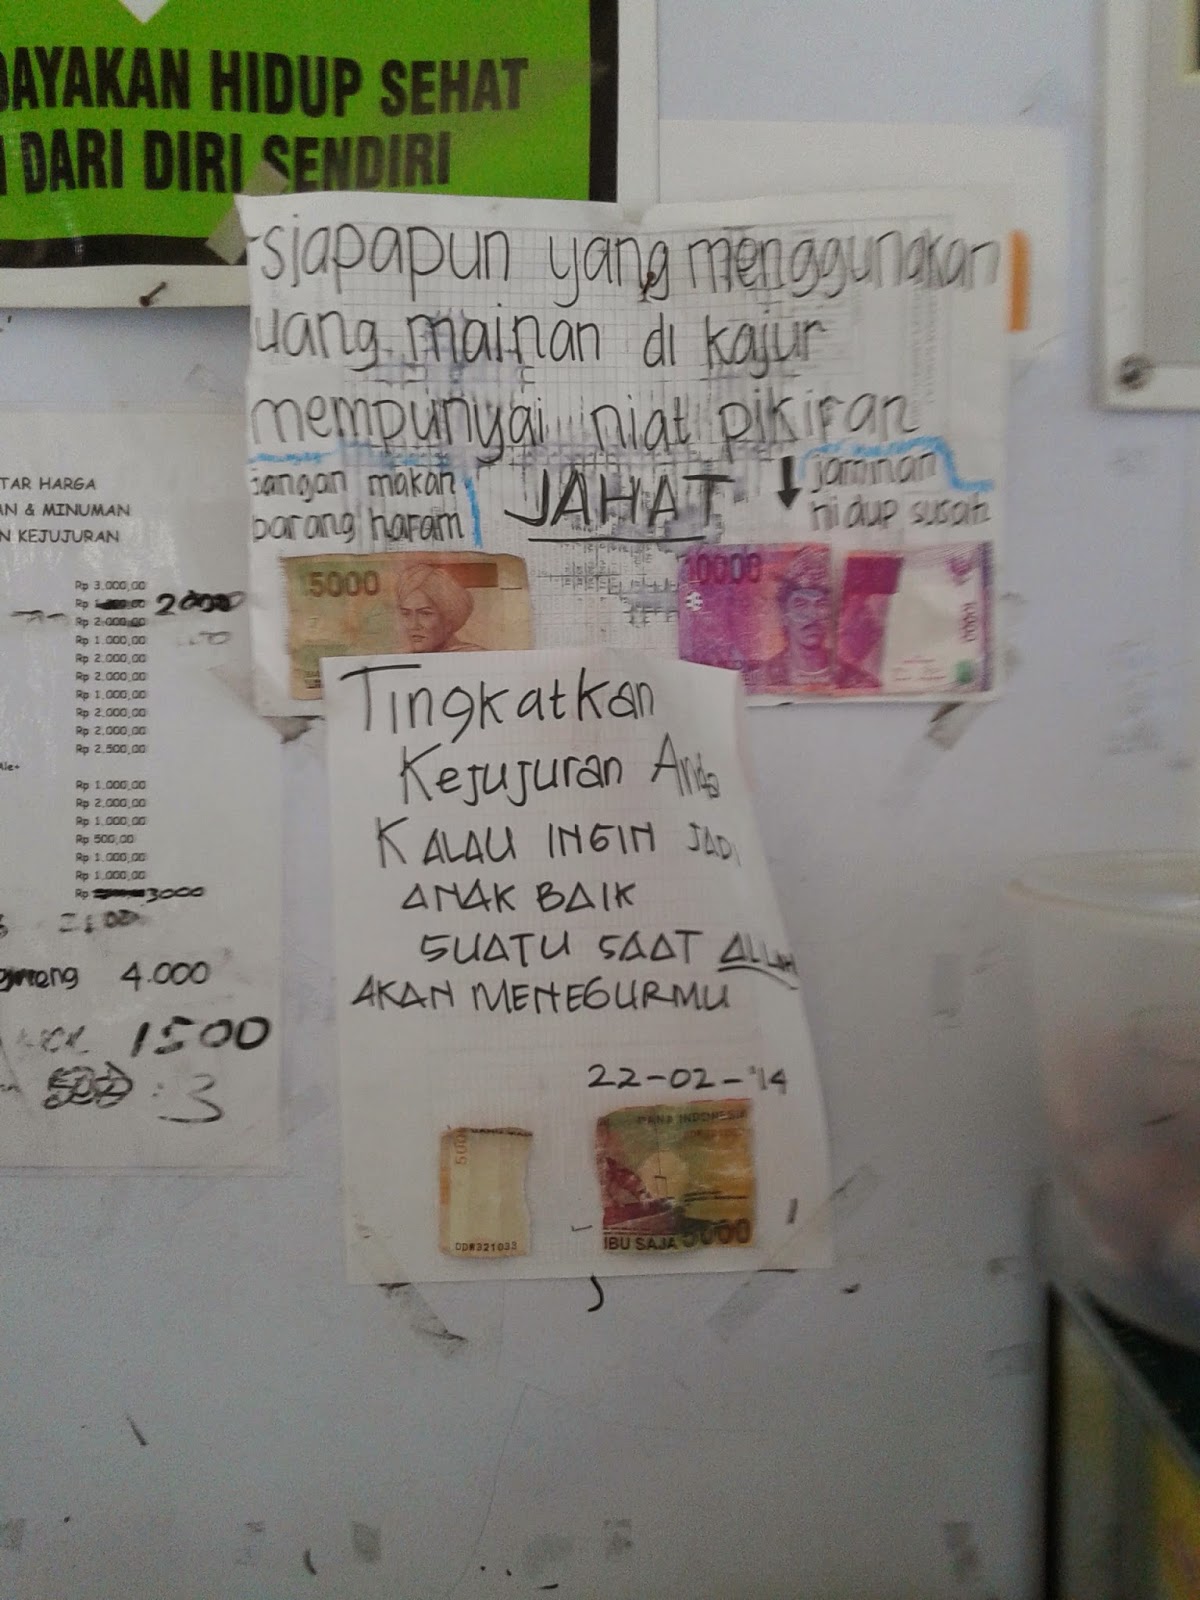 DAYAKAN HIDUP SEHAT
DARI DIRI SENDIRI
siapapun yang menggunakan
uang mainan di kajur
mempunyai niat pikiran
jangan makan
barang haram
JAHAT
jaminan
hidup susah
5000
10000
10000
TAR HARGA
AN & MINUMAN
N KEJUJURAN
Rp 3.000,00
Rp 2000
Rp 2.000,00
Rp 1.000,00
Rp 2.000,00
Rp 2.000,00
Rp 1.000,00
Rp 2.000,00
Rp 2.000,00
Rp 2.500,00
Ale-
Rp 1.000,00
Rp 2.000,00
Rp 1.000,00
Rp 500,00
Rp 1.000,00
Rp 1.000,00
Rp 3000
4.000
1500
3
Tingkatkan
Kejujuran Anda
KALAU INGIN JADI
ANAK BAIK
SUATU SAAT ALLAH
AKAN MENEGURMU
22-02-'14
500
DDW321033
BANK INDONESIA
IBU SAJA 5000